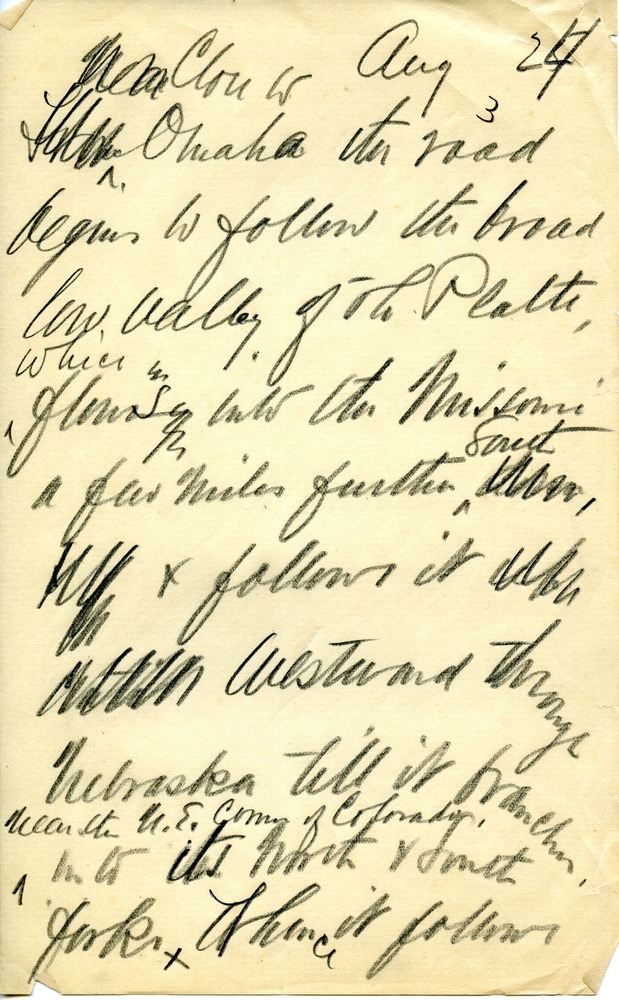 Aug 24
3
Omaha the road
begins to follow the broad
low valley of the Platte,
which
flows into the Missouri
South
a few miles further
x follows it
Westward through
Nebraska till it branches,
near the N. E. Corner of Colorado,
into its North & South
forks x Whence it follows